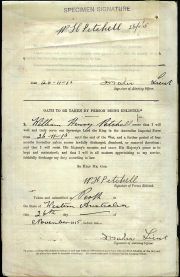 SPECIMEN SIGNATURE
W H Petchell
Date 26-11-15
Lieut
Signature of Attesting Officer.
OATH TO BE TAKEN BY PERSON BEING ENLISTED.
I, William Henry Petchell swear that I will
well and truly serve our Sovereign Lord the King in the Australian Imperial Force
26-11-15 until the end of the War, and a further period of four
months thereafter unless sooner lawfully discharged, dismissed, or removed therefrom;
and that I will resist His Majesty's enemies and cause His Majesty's peace to be
kept and maintained; and that I will in all matters appertaining to my service
faithfully discharge my duty according to law.
SO HELP ME, GOD.
W H Petchell
Signature of Person Enlisted.
Taken and subscribed at Perth in
the State of Western Australia
this 26th day of
November 1915 before me
Lieut
Signature of Attesting Officer.